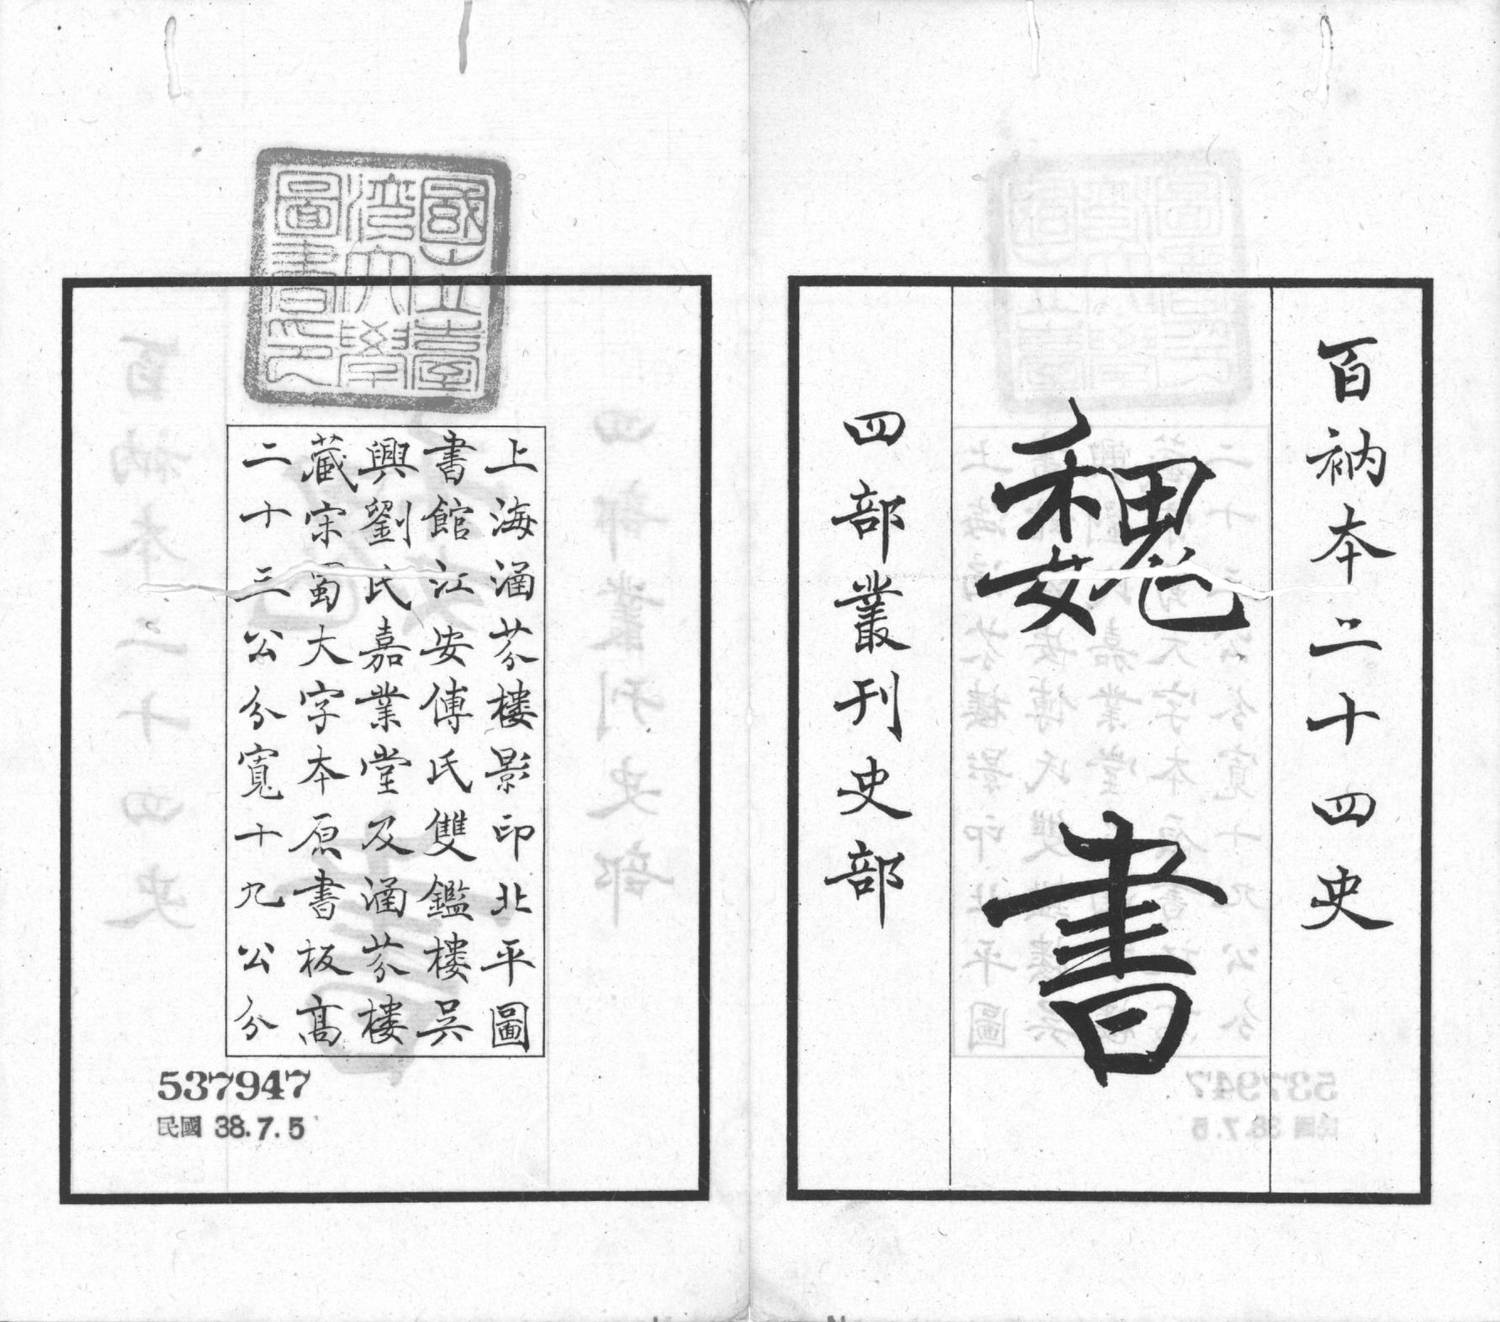 百衲本二十四史
魏書
四部叢刊史部
國立臺
灣大學
圖書印
上海涵芬樓影印北平圖
書館江安傅氏雙鑑樓吳
興劉氏嘉業堂及涵芬樓
藏宋蜀大字本原書板高
二十三公分寬十九公分
537947
民國 38.7.5